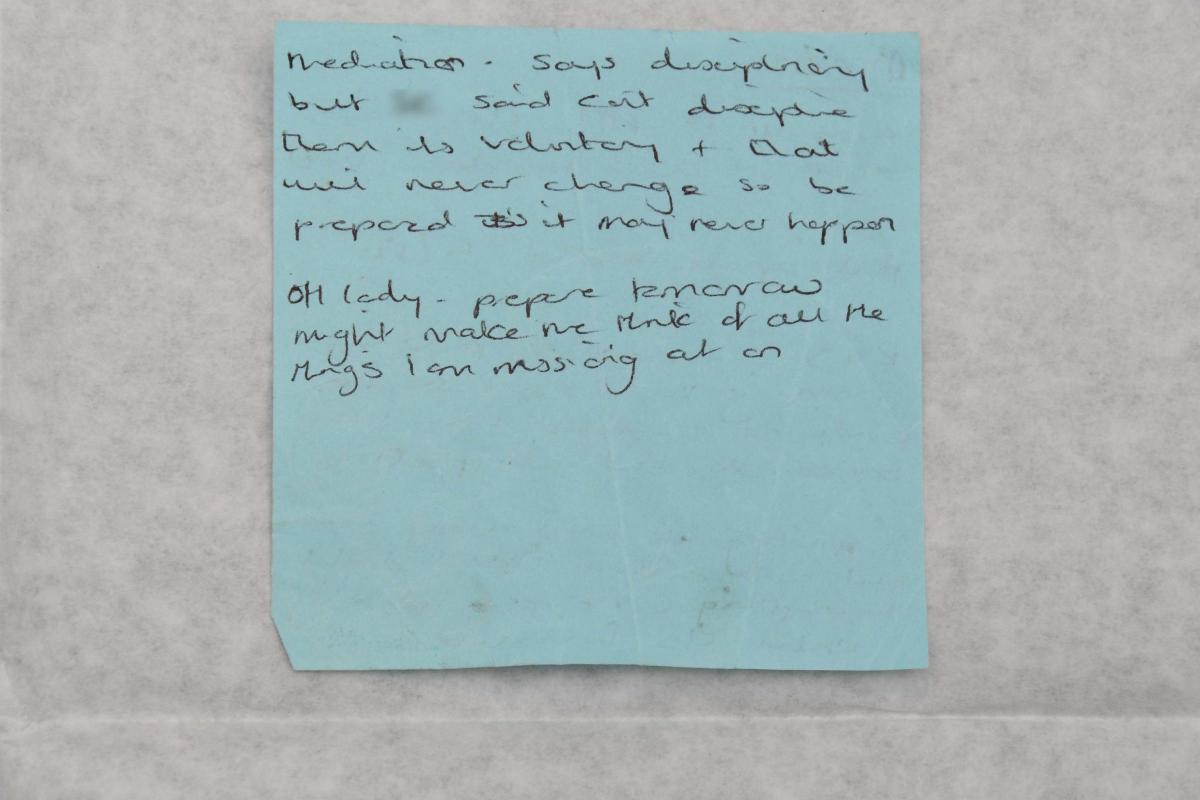 Mediation - says disciplinary
but said can't discipline
them is voluntary + that
will never change so be
prepared it may never happen
OH lady - prepare tomorrow
might make me think of all the
things I am missing out on